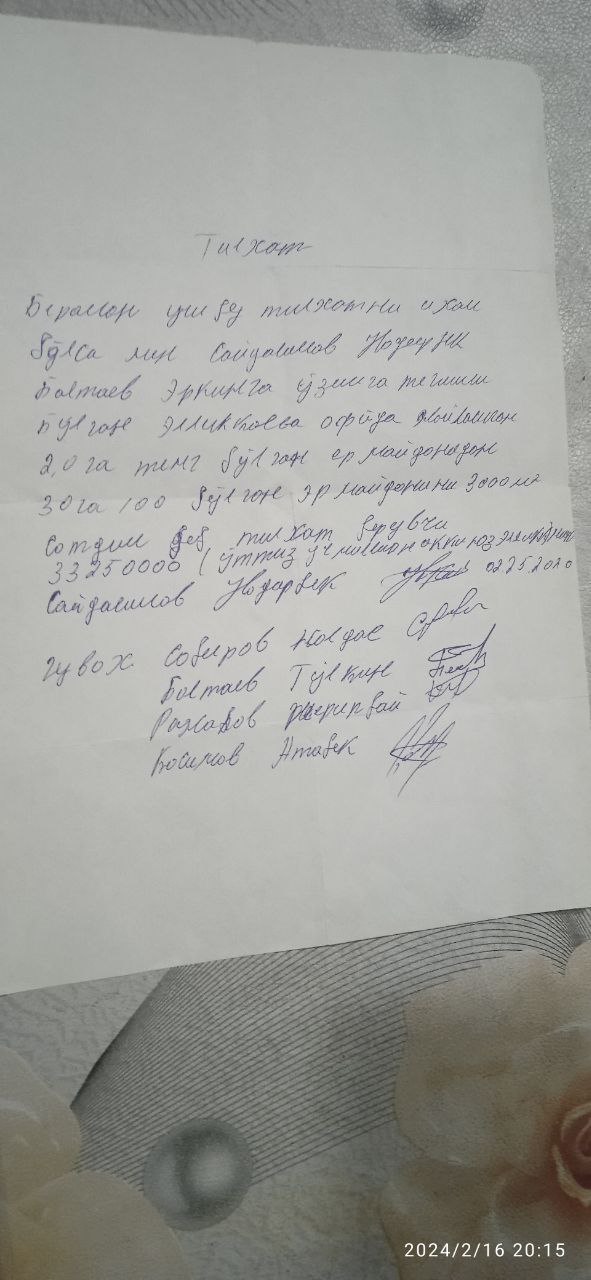 Тилхат
Бераман ушбу тилхатни шхам
бўлса мен Сайдалимов Нодирбек
Болтаев Эркинга ўзимга тегишли
бўлган Элликкалъа
2,0 га тенг бўлган ер майдонидан
30 га 100 бўлган эр майдонини 3000 м2
Сотдим деб тилхат берувчи
33250000 (ўттиз уч миллион икки юз эллик минг
Сайдалимов Нодирбек 02 25.2020
Гувох Собиров
Болтаев Тўлкин
Ражабов
Косимов Атабек
2024/2/16 20:15